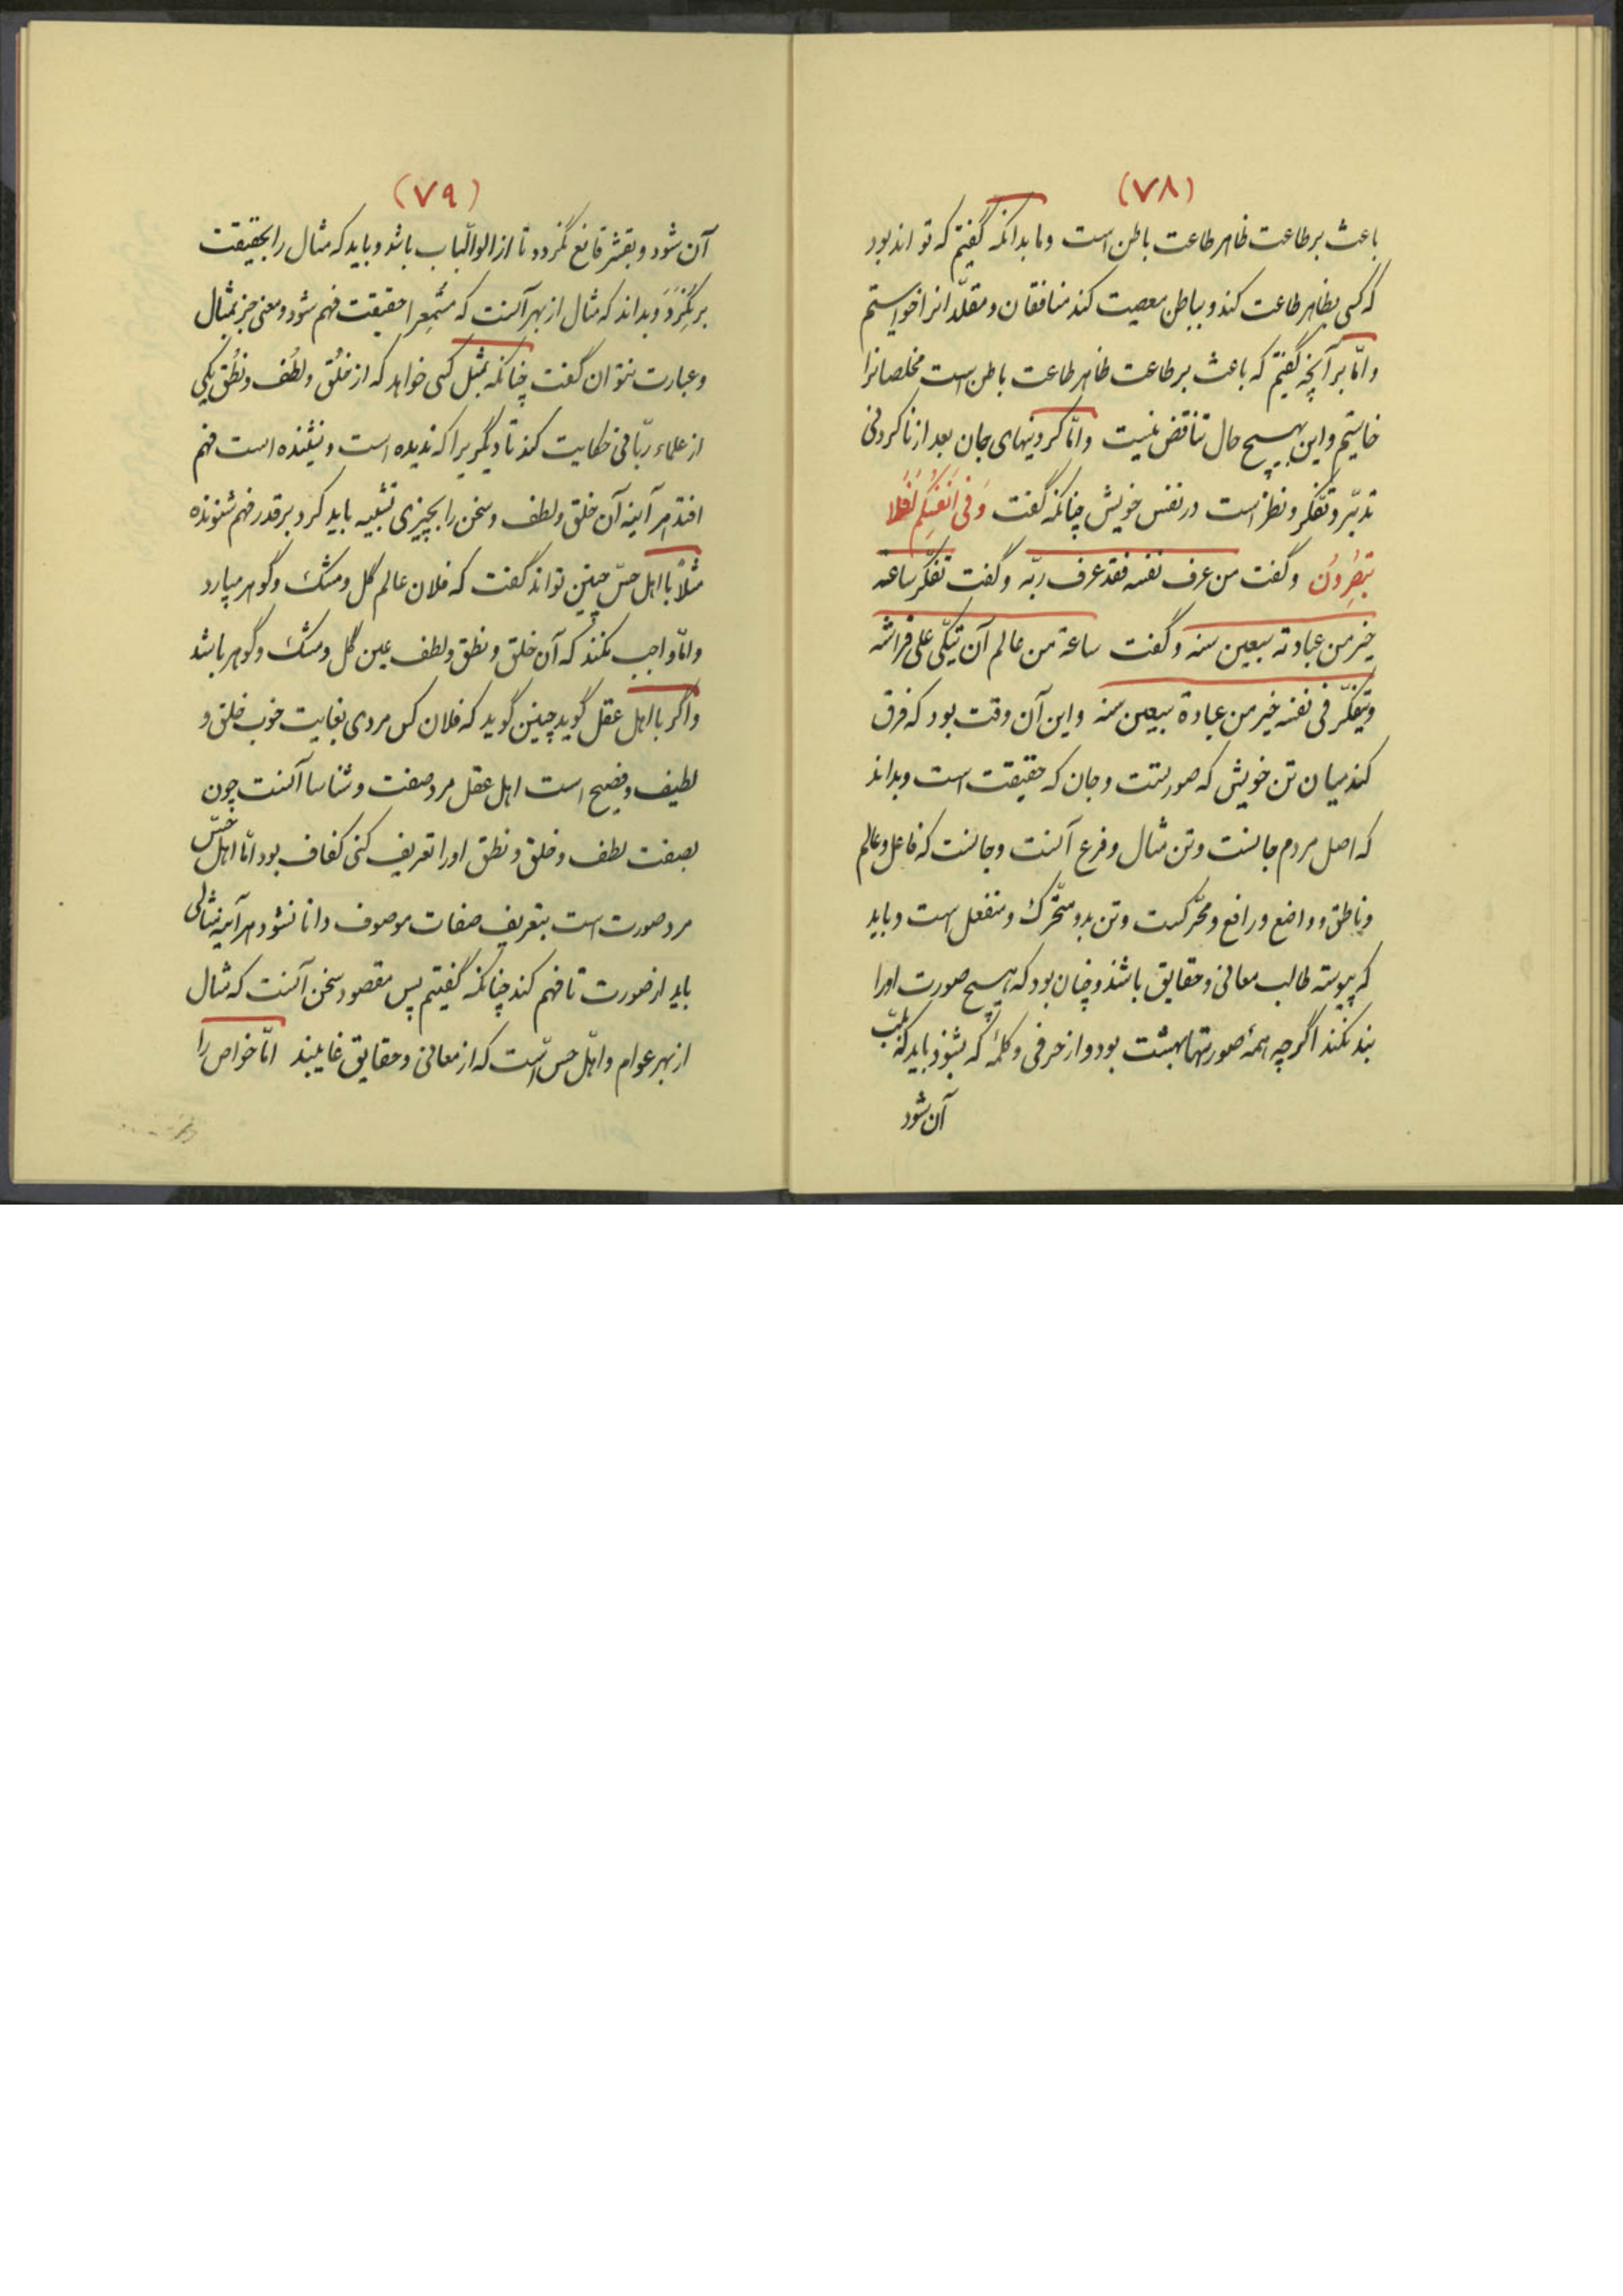 (۷۸)
باعث بر طاعت ظاهر طاعت باطن است و ما بدانکه گفتیم که تواند بود
که کسی بظاهر طاعت کند و بباطن معصیت کند منافقان و مقلدانرا خواستیم
و امّا بر آنچه گفتیم که باعث بر طاعت ظاهر طاعت باطن است مخلصانرا
خواستیم و این بهیچ حال تناقض نیست و امّا کردنیهای بجان بعد از ناکردنی
تدبّر و تفکّر و نظر است در نفس خویش چنانکه گفت وَفی اَنفُسِکُم اَفَلا
تُبصِرُونَ و گفت من عرف نفسه فقد عرف ربّه و گفت تفکّر ساعة
خیر من عبادة سبعین سنه و گفت ساعة من عالم آن یتکّی علی فراشه
و یتفکّر فی نفسه خیر من عبادة سبعین سنه و این آن وقت بود که فرق
کند میان تن خویش که صورتست و جان که حقیقت است و بداند
که اصل مردم جانست و تن مثال و فرع آنست و جانست که فاعل و عالم
و ناطق و واضع و رافع و محرّکست و تن بدو متحرّک و منفعل است و باید
که پیوسته طالب معانی و حقایق باشد و چنان بود که هیچ صورت اورا
بند نکند اگرچه همه صورتها بهشت بود و از حرفی و کلمهٔ که بشنود باید که بلبّ
آن شود
(۷۹)
آن شود و بقشر قانع نگردد تا از الوالّباب باشد و باید که مثال را بحقیقت
برنگیرد و بداند که مثال از بهر آنست که مستمع را حقیقت فهم شود و معنی جز بمثال
و عبارت نتوان گفت چنانکه بمثل کسی خواهد که از خُلق و لُطف و نُطق یکی
از علماء ربّانی حکایت کند تا دیگریرا که ندیده است و نشنیده است فهم
افتد هر آینه آن خلق و لطف و سخن را بچیزی تشبیه باید کرد بر قدر فهم شنونده
مثلاً با اهل حسّ چنین تواند گفت که فلان عالم گل و مشک و گوهر میبارد
و امّا واجب نکند که آن خلق و نطق و لطف عین گل و مشک و گوهر باشد
و اگر با اهل عقل گوید چنین گوید که فلان کس مردی بغایت خوب خلق و
لطیف و فصیح است اهل عقل مرد صفت و شناسا آنست چون
بصفت لطف و خلق و نطق او را تعریف کنی کفاف بود امّا اهل حسّ
مرد صورت است بتعریف صفات موصوف دانا نشود هر آینه مثالی
باید از صورت تا فهم کند چنانکه گفتیم پس مقصود سخن آنست که مثال
از بهر عوام و اهل حسّ است که از معانی و حقایق غایبند امّا خواص را